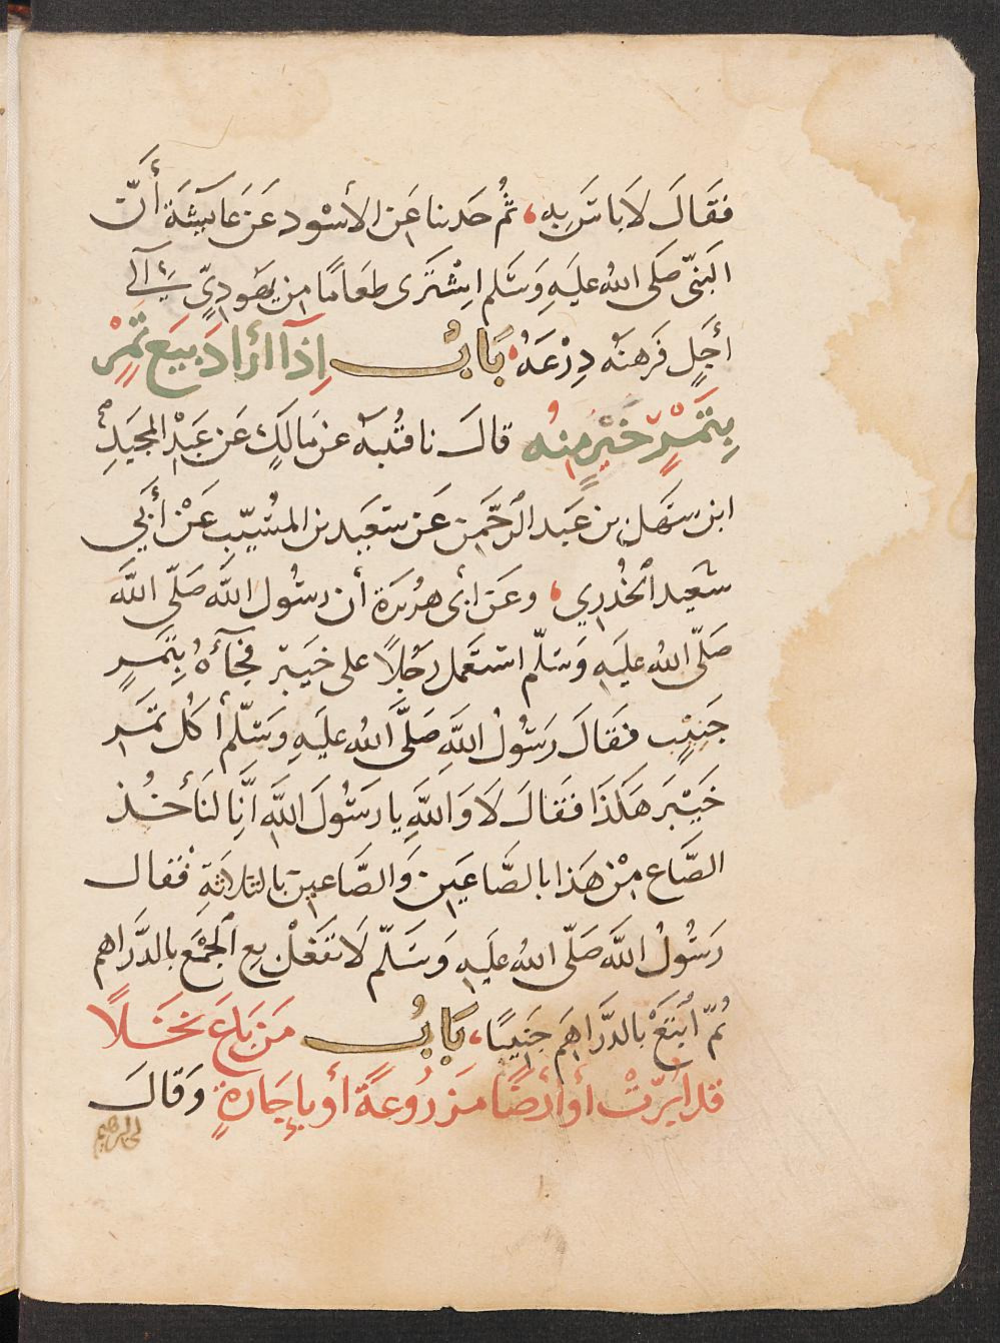 فَقَالَ لَا بَاسَ بِهِ ثُمَّ حَدثنا عَنِ الأَسْوَد عَنَ عَايشَةَ أَنَّ
النَبيّ صَلى اللهُ عليَهِ وَسَلم اِشْتَرى طَعَامًا مِن يَهوديٍّ إلى
أَجَلٍ فَرَهنَهُ دِرْعَهُ بَابُ إِذَا أَرَادَ بَيعَ تَمْرٍ
بِتَمْرٍ خَيْرٍ مِنه قالَ نا قتُيبة عن مَالِكٍ عَن عَبْدِ المجيَدِ
ابن سَهَل بن عَبد الرَّحَمن عَن سَعَيد بن المسُيّب عَنْ أَبي
سَعَيد الخُدري وعَن أبى هرُيرَة أن رسُول اللَّه صَلّى اللَّه
صَلّى اللهُ عليَهِ وَسَلّم استَعَمل رَجُلاً على خيَبَر فجَآءهُ بِتَمَرٍ
جَنِيْبٍ فَقَالَ رَسُولُ اللَّهِ صَلَّى اللهُ عليَهِ وَسَلّم أَكُل تَمَرِ
خَيْبَرَ هَكَذَا فَقالَ لَا وَاللَّهِ يا رَسُولَ اللَّهِ إنَّا لنَأخُذ
الصَّاع مِنْ هَذا بالصَّاعَيَن وَالصَّاعين بالثلاثَةِ فَقال
رَسُولُ اللَّه صَلّى اللهُ عليَهِ وَسَلّم لَا تَفَعْل بع الجْمَع بالدَّرَاهم
ثُمّ ابتَعْ بالدَّرَاهِمَ جَنيبًا بَابُ مَن بَاعَ نَخلًا
قد أبّرَتْ أو أَرْضًا مَزرُوعَةً أو بإِجَارةٍ وَقالَ
لى ابرهيم